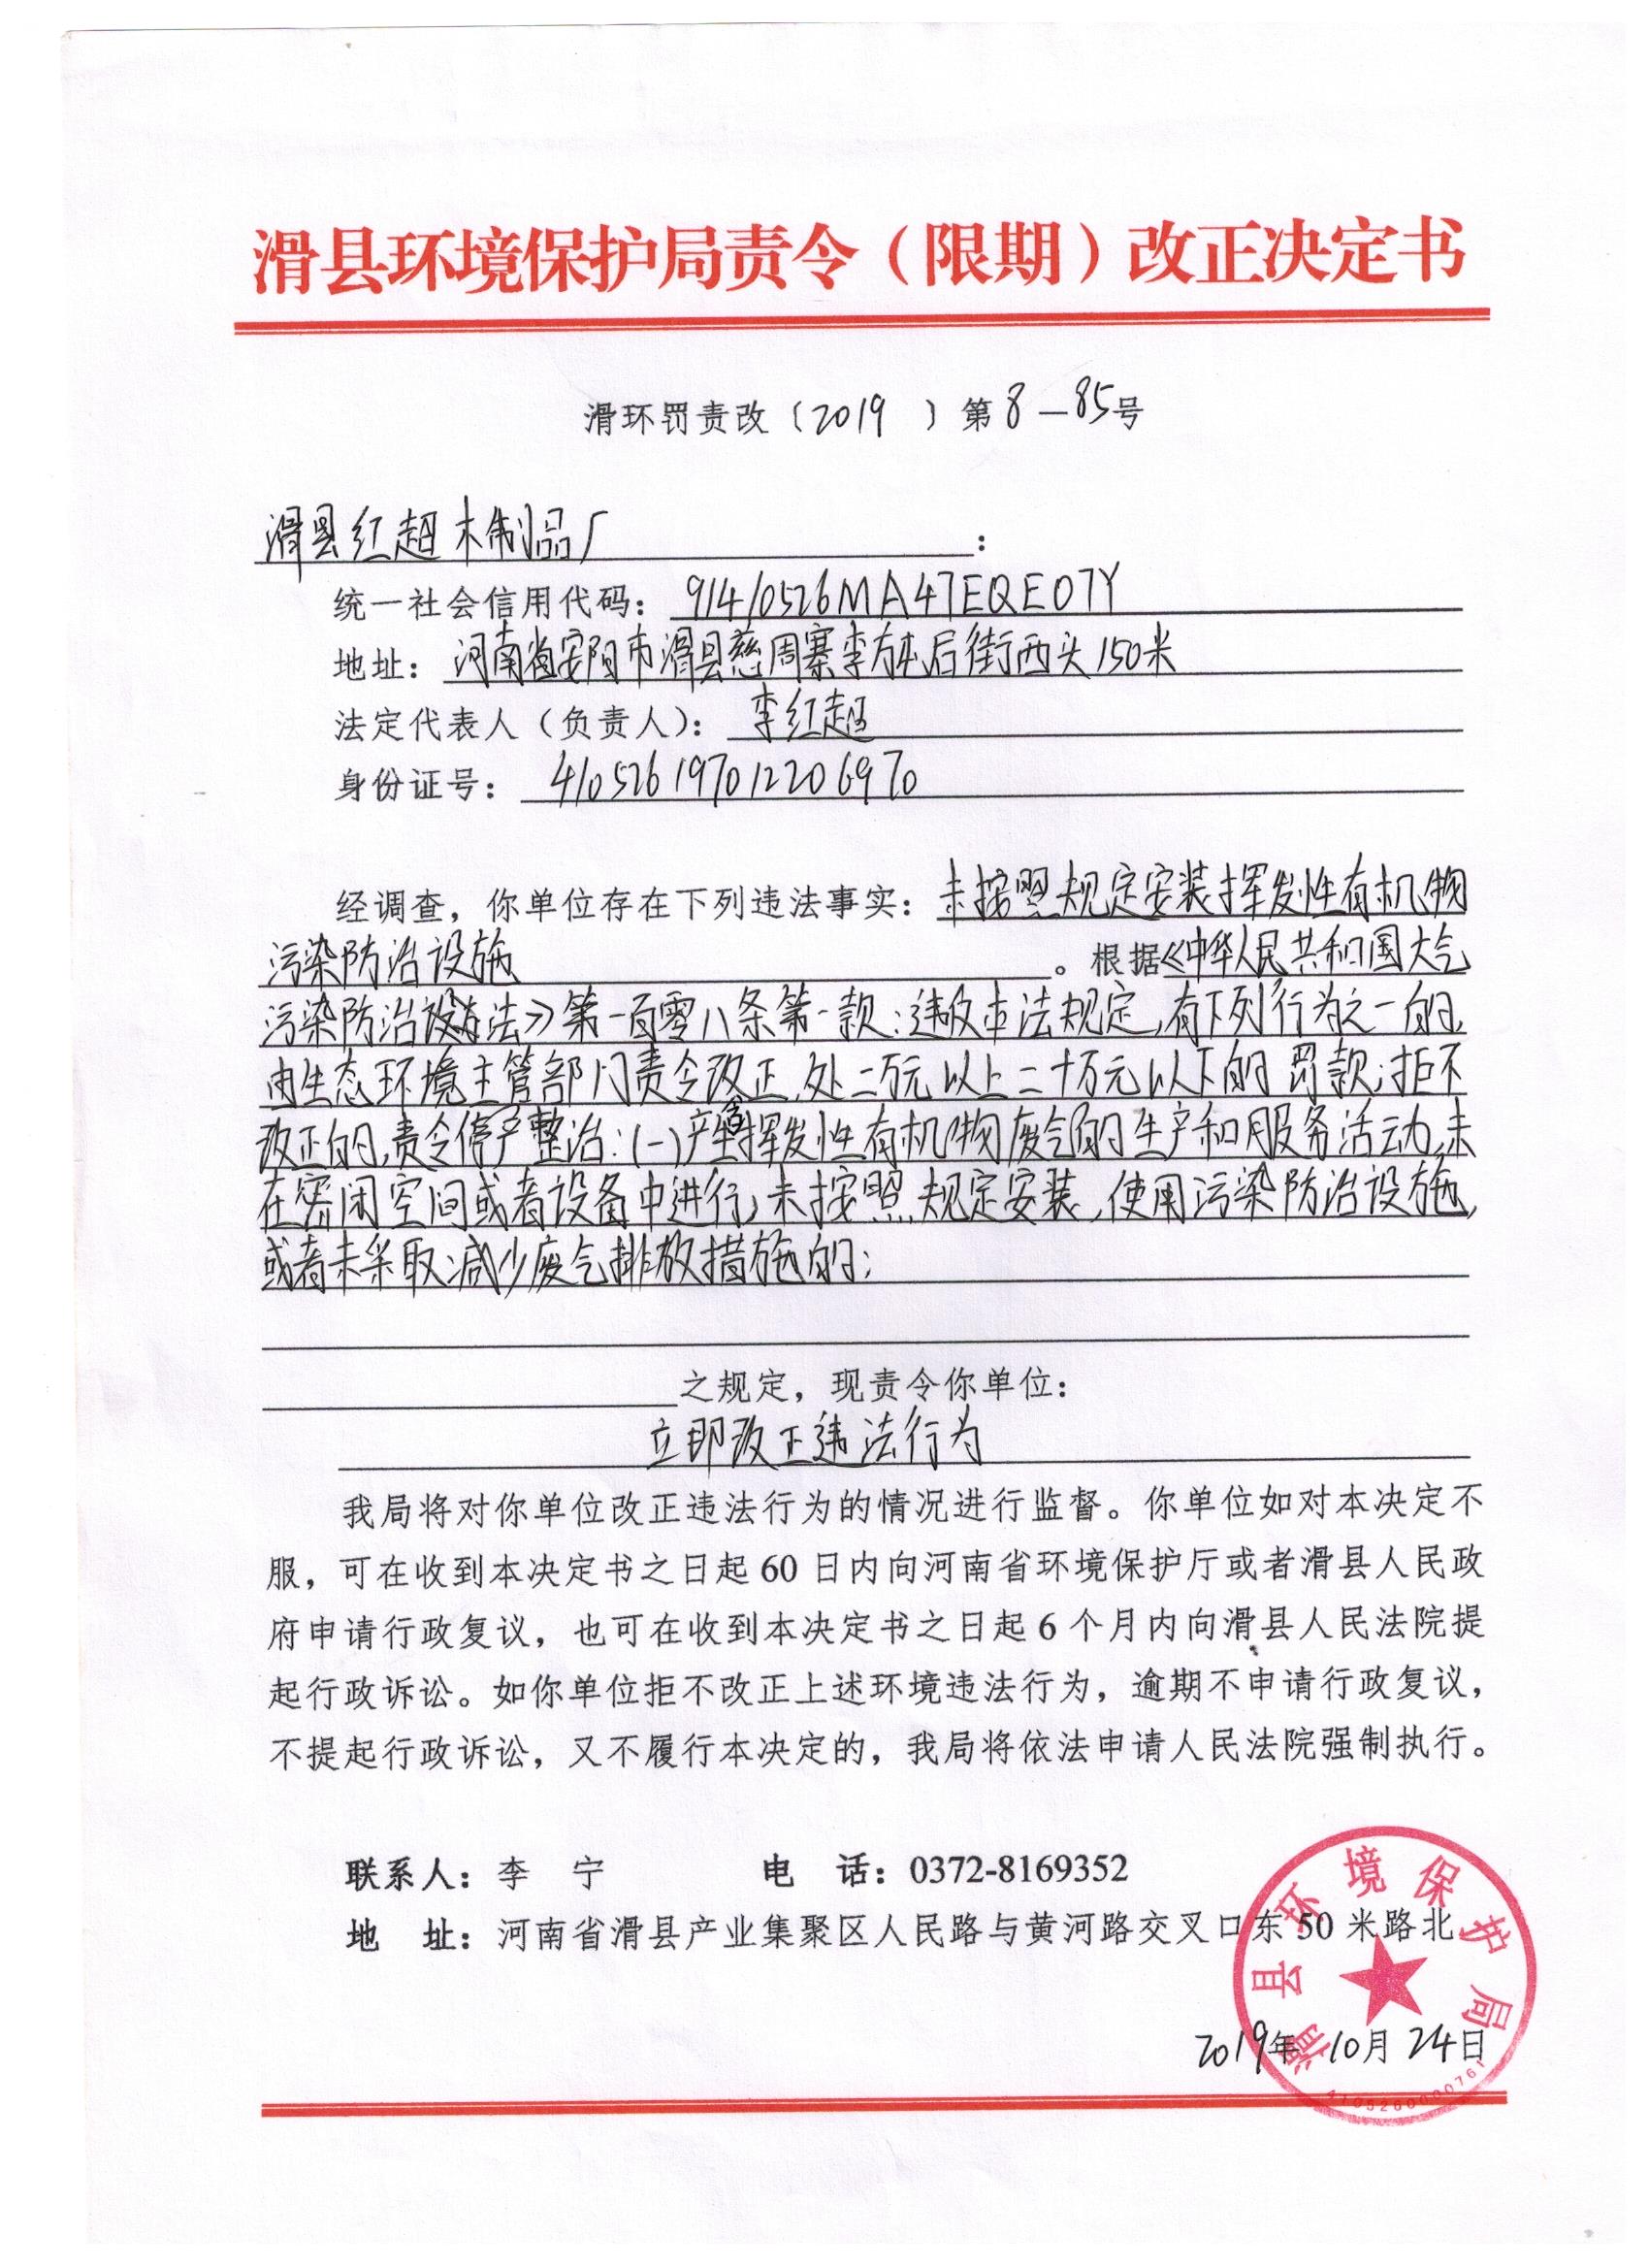 滑县环境保护局责令（限期）改正决定书
滑环罚责改〔2019 〕第8—85号
滑县红超木制品厂：
统一社会信用代码：91410526MA47EQE07Y
地址：河南省安阳市滑县慈周寨李方屯后街西头150米
法定代表人（负责人）：李红超
身份证号：410526197012206970
经调查，你单位存在下列违法事实：未按照规定安装挥发性有机物
污染防治设施。根据《中华人民共和国大气
污染防治法》第一百零八条第一款：违反本法规定，有下列行为之一的，
由生态环境主管部门责令改正，处二万元以上二十万元以下的罚款；拒不
改正的，责令停产整治：（一）产生含挥发性有机物废气的生产和服务活动，未
在密闭空间或者设备中进行，未按照规定安装、使用污染防治设施，
或者未采取减少废气排放措施的；
之规定，现责令你单位：
立即改正违法行为
我局将对你单位改正违法行为的情况进行监督。你单位如对本决定不
服，可在收到本决定书之日起60日内向河南省环境保护厅或者滑县人民政
府申请行政复议，也可在收到本决定书之日起6个月内向滑县人民法院提
起行政诉讼。如你单位拒不改正上述环境违法行为，逾期不申请行政复议，
不提起行政诉讼，又不履行本决定的，我局将依法申请人民法院强制执行。
联系人：李 宁 电 话：0372-8169352
地 址：河南省滑县产业集聚区人民路与黄河路交叉口东50米路北
滑县环境保护局
2019年10月24日
4105260000761